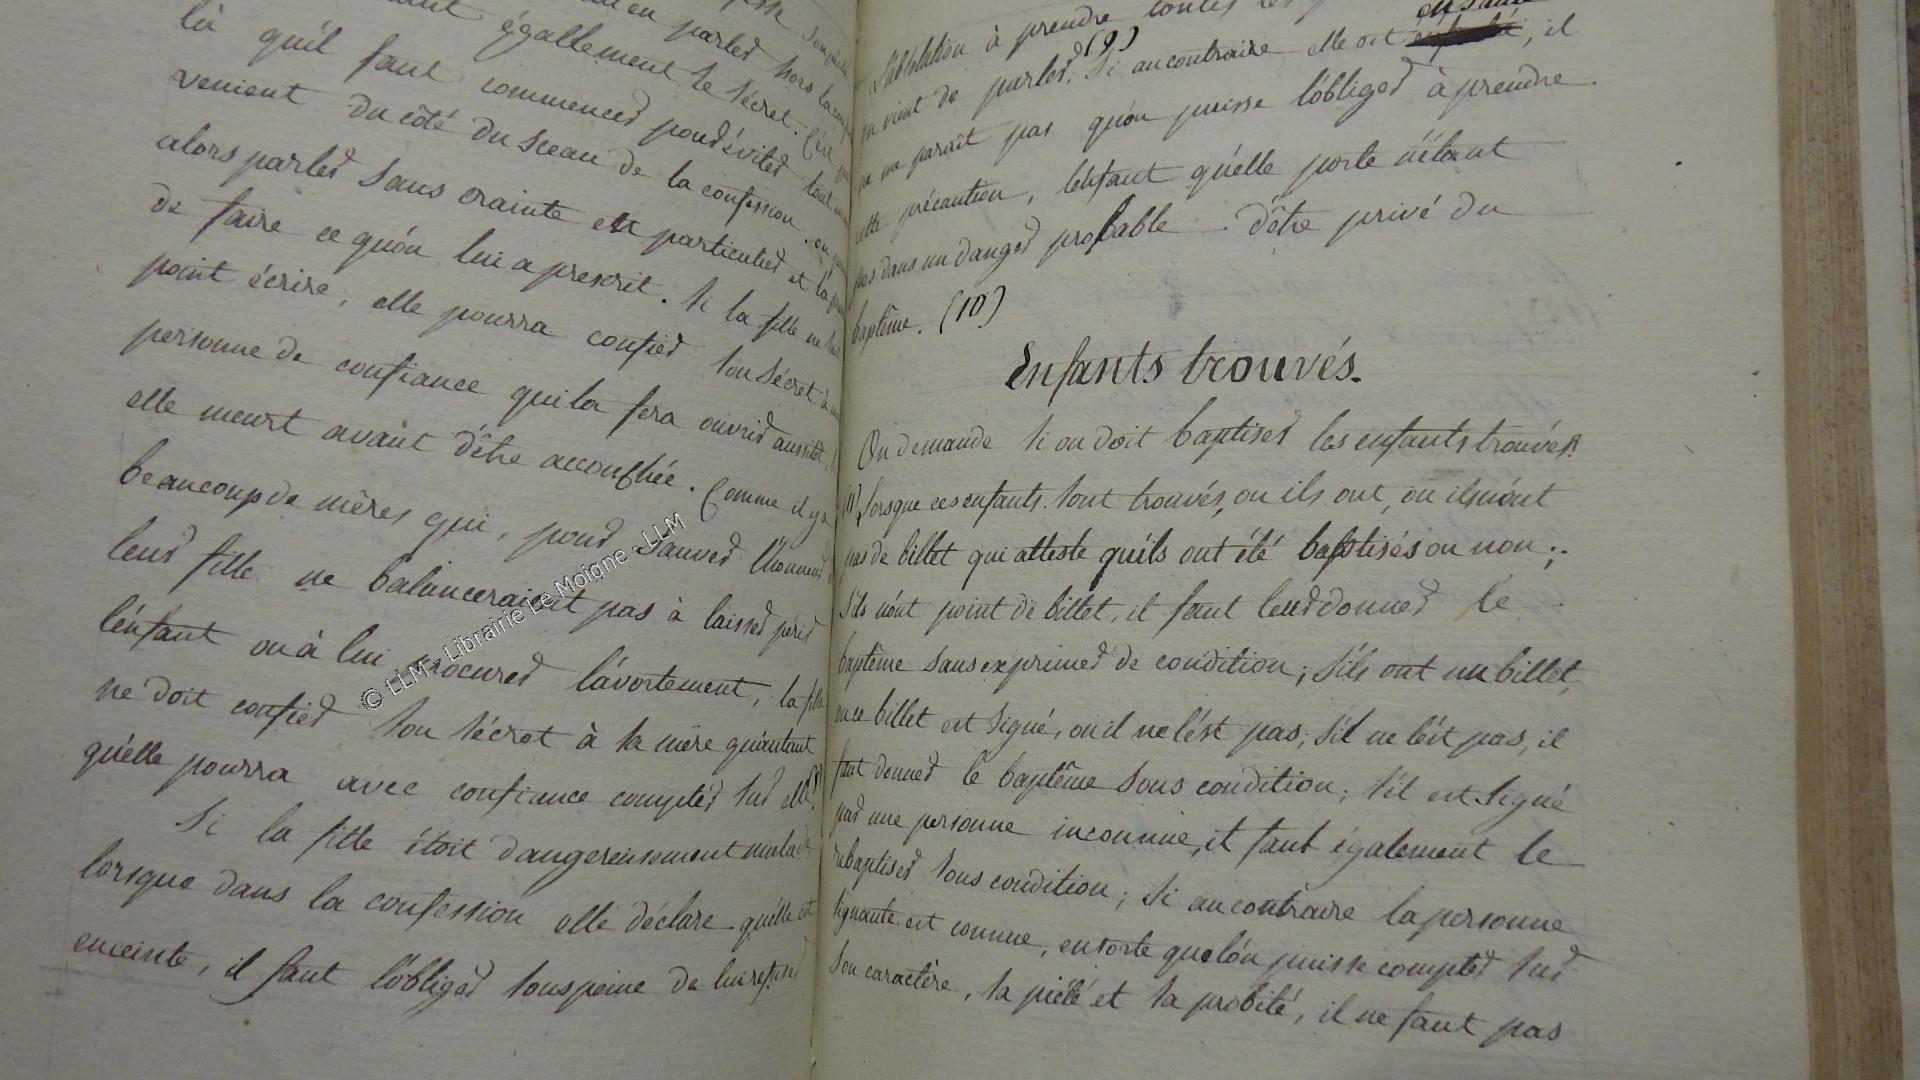 en parler hors la conf
égallement le sécret. C'est
là qu'il faut commencer pour éviter tout
venient du côté du sceau de la confession. on
alors parler sans crainte en particulier et la
de faire ce qu'on lui a prescrit. Si la fille ne
point écrire, elle pourra confier son sécret à
personne de confiance qui la fera ouvrir aussitôt
elle meurt avant d'être accouchée. Comme il y a
beaucoup de mères qui, pour sauver l'honneur
leur fille ne balanceraient pas à laisser périr
l'enfant ou à lui procurer l'avortement, la fille
ne doit confier son sécret à sa mère qu'autant
qu'elle pourra avec confiance compter sur elle.
Si la fille étoit dangereusement malade
lorsque dans la confession elle déclare qu'elle est
enceinte, il faut l'obliger sous peine de lui refuser
L'absolution à prendre toutes les
on vient de parler. (9) Si au contraire elle est en santé, il
ne parait pas qu'on puisse l'obliger à prendre
cette précaution, l'enfant qu'elle porte n'étant
pas dans un danger probable d'être privé du
baptême. (10)
Enfants trouvés.
On demande si on doit baptiser les enfants trouvés.
11) Lorsque ces enfants sont trouvés, ou ils ont, ou ils n'ont
pas de billet qui atteste qu'ils ont été baptisés ou non;
s'ils n'ont point de billet, il faut leur donner le
baptême sans exprimer de condition; s'ils ont un billet,
ou ce billet est signé, ou il ne l'est pas; s'il ne l'est pas, il
faut donner le baptême sous condition; s'il est signé
par une personne inconnue, il faut également le
rebaptiser sous condition; si au contraire la personne
signante est connue, en sorte que l'on puisse compter sur
son caractère, sa piété et sa probité, il ne faut pas
© LLM - Librairie Le Moigne - LLM